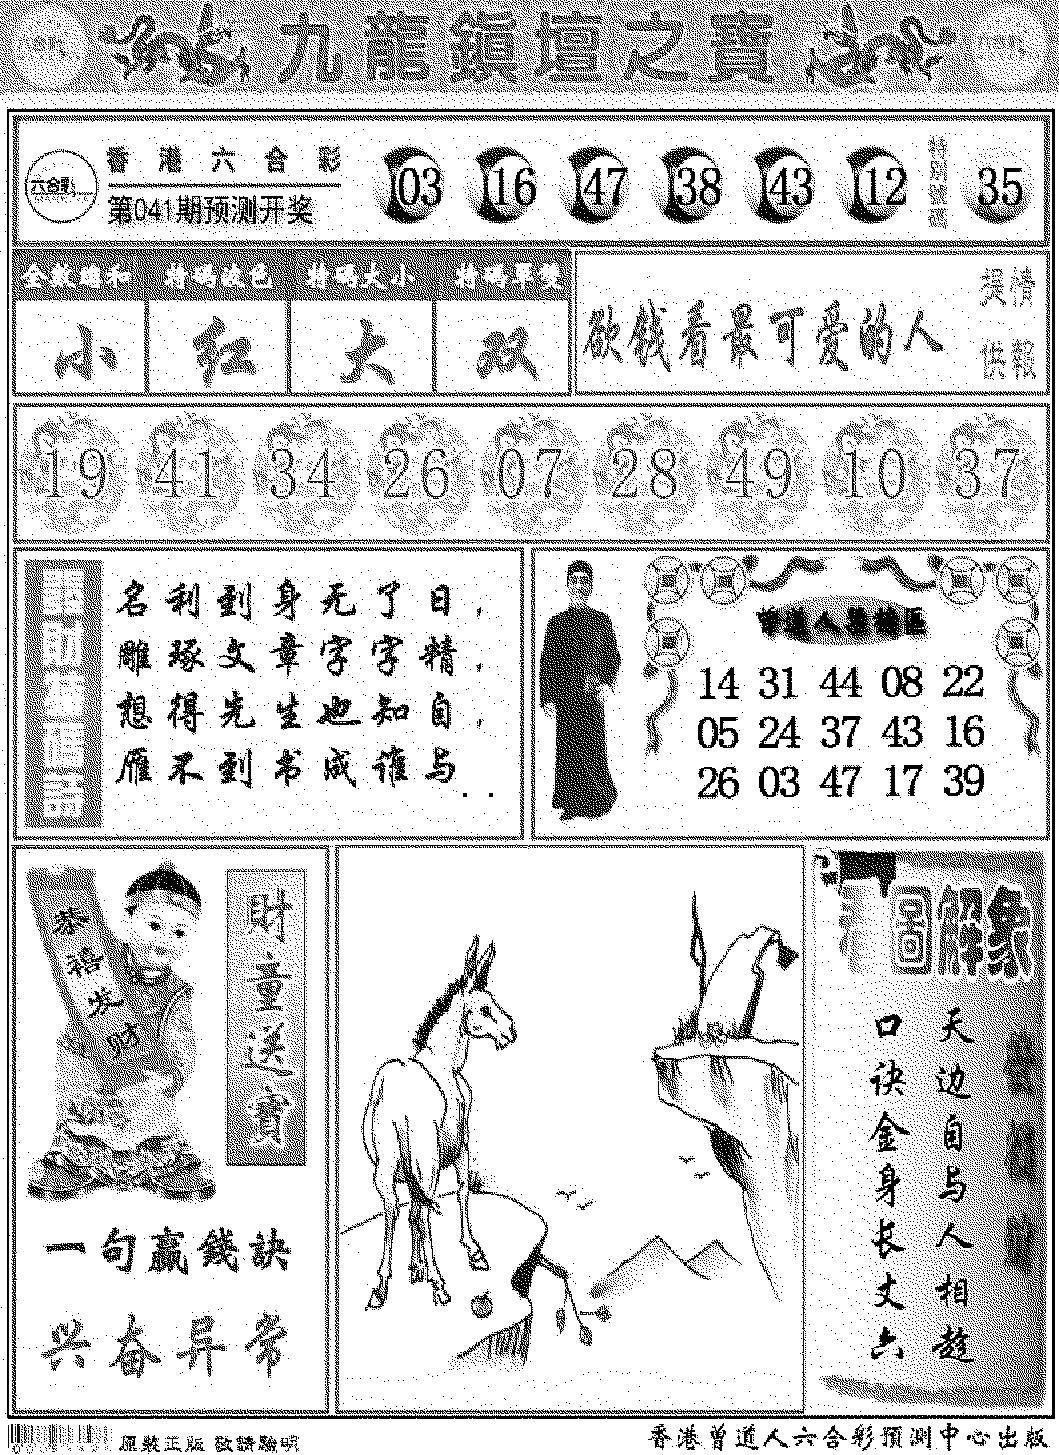 九龍鎮壇之寶
六合彩
香港六合彩
第041期预测开奖
03 16 47 38 43 12
特別號碼
35
特码波色 特码大小 特码单双
小 红 大 双
欲钱看最可爱的人
提供
情報
19 41 34 26 07 28 49 10 37
名利到身无了日，
雕琢文章字字精，
想得先生也知自，
雁不到书成谁与..
14 31 44 08 22
05 24 37 43 16
26 03 47 17 39
恭禧发财
財童送寶
一句赢錢訣
兴奋异常
圖解象
天边自与人相趋
口诀金身长丈六
原裝正版 敬請驗明
香港曾道人六合彩預測中心出版